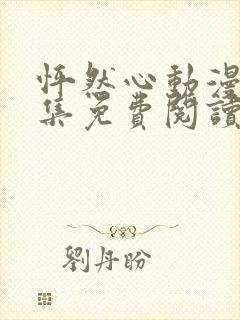 怦然心動漫
集免費閱讀
劉丹盼